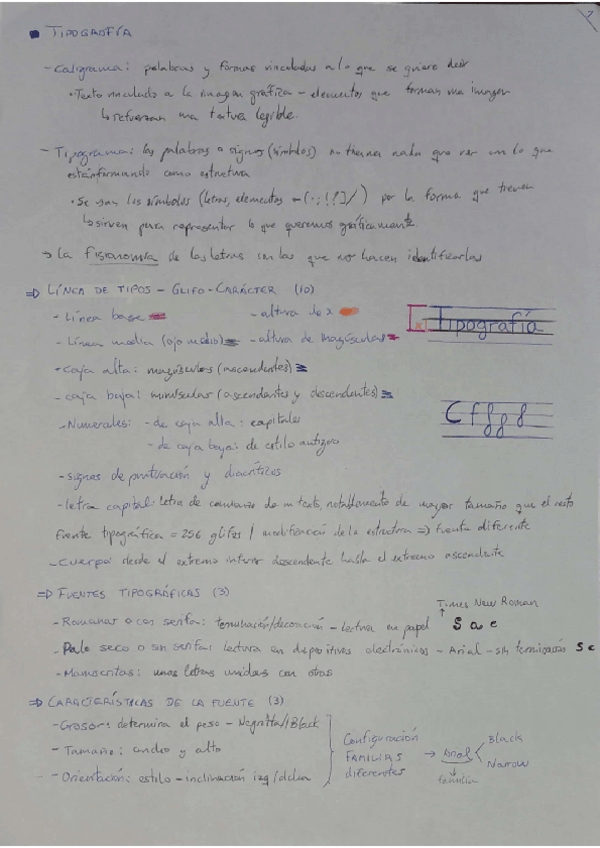 1
TIPOGRAFÍA
- Caligrama: palabras y formas vinculadas a lo que se quiere decir
• Texto vinculado a la imagen gráfica - elementos que forman una imagen
↳ refuerzan una textura legible.
- Tipograma: las palabras o signos (símbolos) no tienen nada que ver con lo que
están formando como estructura
• Se usan los símbolos (letras, elementos - (·;!?]/) por la forma que tienen
↳ sirven para representar lo que queremos gráficamente
→ La fisionomía de las letras con las que nos hacen identificarlas
⇒ LÍNEA DE TIPOS - GLIFO - CARÁCTER (10)
- Línea base - altura de x
- Línea media (ojo medio) - altura de mayúsculas
x Tipografía
- caja alta: mayúsculas (ascendentes)
- caja baja: minúsculas (ascendentes y descendentes)
- Numerales: - de caja alta: capitales
- de caja baja: de estilo antiguo
- signos de puntuación y diacríticos
- letra capital: letra de comienzo de un texto, notablemente de mayor tamaño que el resto
fuente tipográfica = 256 glifos / modificación de la estructura ⇒ fuente diferente
- Cuerpo: desde el extremo inferior descendente hasta el extremo ascendente
⇒ FUENTES TIPOGRÁFICAS (3)
Times New Roman
- Romanas o con serifa: terminación/decoración - lectura en papel S a e
- Palo seco o sin serifa: lectura en dispositivos electrónicos - Arial - sin terminación S e
- Manuscritas: unas letras unidas con otras
⇒ CARACTERÍSTICAS DE LA FUENTE (3)
- Grosor: determina el peso - Negrita/Black
- Tamaño: ancho y alto
- Orientación: estilo - inclinación izq/dcha
Configuración
FAMILIAS
diferentes
→ Arial
Black
Narrow
familia